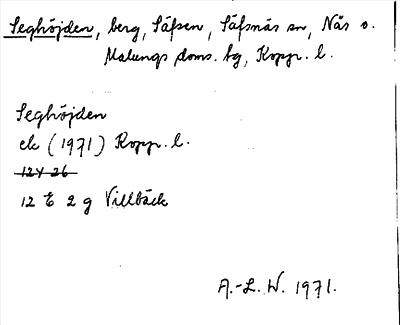 Seghöjden, berg, Säfsen, Säfsnäs sn, Nås o.
Malungs doms. bg, Kopp. l.
Seghöjden
ek (1971) Kopp. l.
12Y 26
12 E 2 g Villbäck
A.-L. W. 1971.